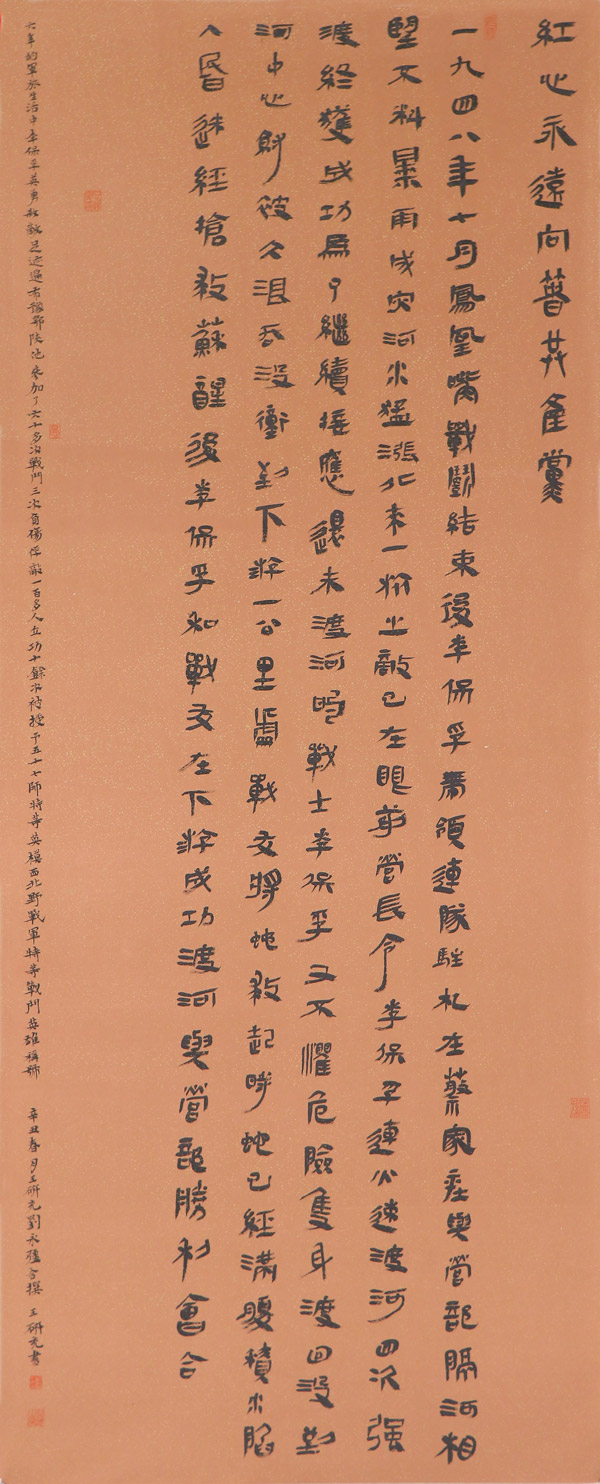 紅心永遠向着共產黨
一九四八年七月鳳凰嘴戰鬭結束後李保孚帶領連隊駐札在蔡家庄與營部隔河相
望不料暴雨成灾河水猛漲北来一ươ之敵已在眼前營長令李保孚連火速渡河四次强
渡終獲成功爲了繼續接應還未渡河的戰士李保孚又不懼危險隻身渡回没到
河中心時被久浪吞没衝到下游一公里處戰友將他救起時他已經滿腹積水陷
入昏迷經搶救蘇醒後李保孚和戰友在下游成功渡河與營部勝利會合
六年的軍旅生活中李保孚英勇殺敵足迹遍布鄂陝他参加了六十多次戰鬥三次負傷俘敵一百多人立功十餘次被授予五十七師特等英模西北野戰軍特等戰鬥英雄稱號 辛丑春月王研充劉永 合撰 王研充書